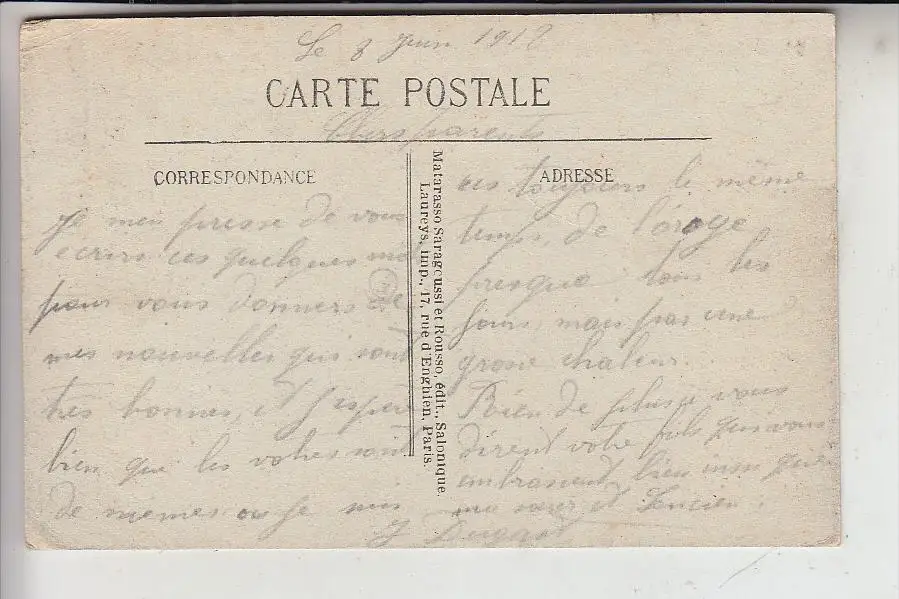 Le 8 Juin 1918
CARTE POSTALE
Chers parents
CORRESPONDANCE
Je men presse de vous
ecrire ces quelques mots
pour vous donners de
mes nouvelles qui sont
très bonnes, et j'espère
bien que les votres soit
de mêmes ou je suis
Matarasso Saragoussi et Rousso, édit., Salonique.
Laureys, imp., 17, rue d'Enghien, Paris.
ADRESSE
ces toujours le même
temps, de l'orage
presque tous les
jours, mais pas une
grosse chaleur.
Rien de plus a vous
dirent votre fils qui vous
embrassent bien insi que
ma sœur et Lucien.
J